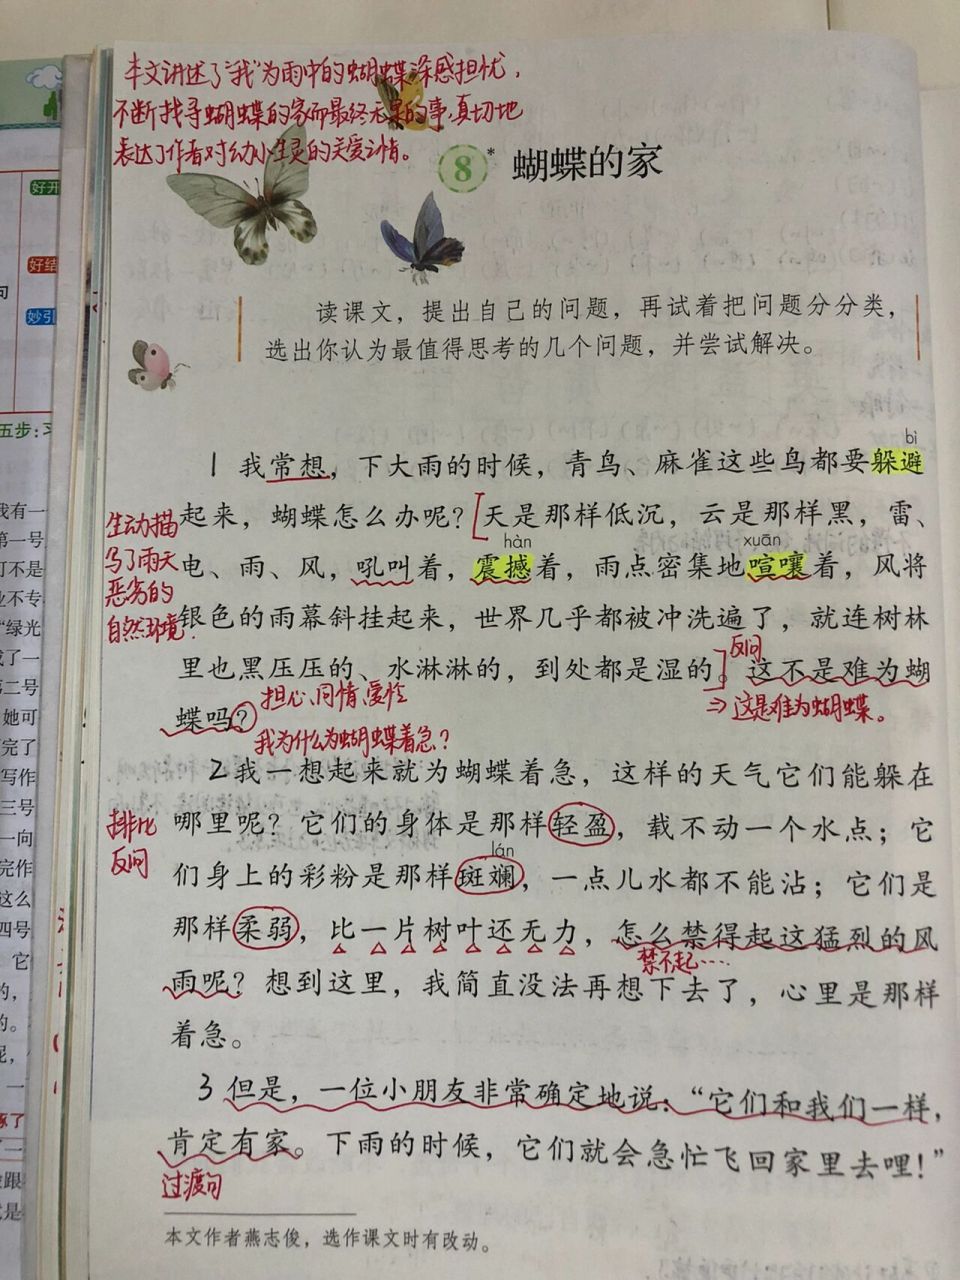 本文讲述了"我"为雨中的蝴蝶深感担忧，
不断找寻蝴蝶的家而最终无果的事，真切地
表达了作者对幼小生灵的关爱之情。
8* 蝴蝶的家
读课文，提出自己的问题，再试着把问题分分类，
选出你认为最值得思考的几个问题，并尝试解决。
bì
1 我常想，下大雨的时候，青鸟、麻雀这些鸟都要躲避
起来，蝴蝶怎么办呢？天是那样低沉，云是那样黑，雷、
hàn xuān
电、雨、风，吼叫着，震撼着，雨点密集地喧嚷着，风将
银色的雨幕斜挂起来，世界几乎都被冲洗遍了，就连树林
里也黑压压的、水淋淋的，到处都是湿的。这不是难为蝴
蝶吗？
生动描
写了雨天
恶劣的
自然环境.
反问
⇒这是难为蝴蝶。
担心、同情、爱怜
我为什么为蝴蝶着急？
2 我一想起来就为蝴蝶着急，这样的天气它们能躲在
哪里呢？它们的身体是那样轻盈，载不动一个水点；它
lán
们身上的彩粉是那样斑斓，一点儿水都不能沾；它们是
那样柔弱，比一片树叶还无力，怎么禁得起这猛烈的风
雨呢？想到这里，我简直没法再想下去了，心里是那样
着急。
排比
反问
禁不起……
3 但是，一位小朋友非常确定地说：“它们和我们一样，
肯定有家。下雨的时候，它们就会急忙飞回家里去哩！”
过渡句
本文作者燕志俊，选作课文时有改动。
好开
好结
妙引
五步：
我有一
第一号
可不是
业不专
“绿光
成了一
第二号
她可
完了
写作
三号
一向
完作
这么
四号
它